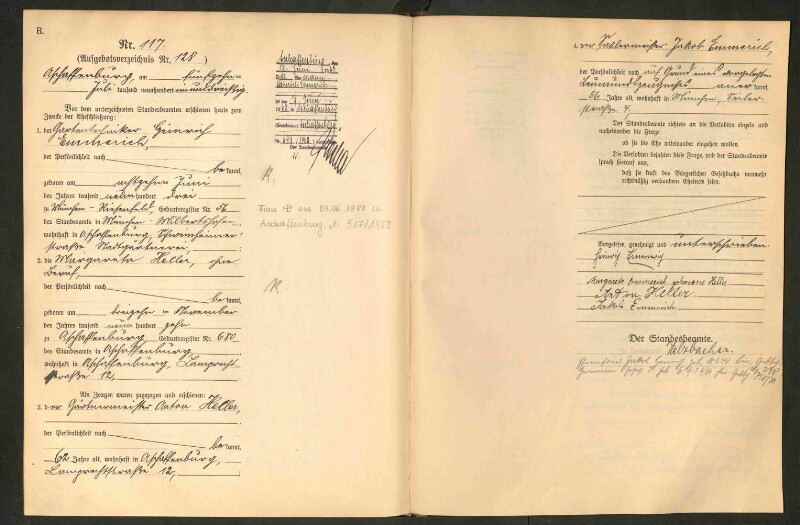 B.
Nr. 117.
(Aufgebotsverzeichnis Nr. 128)
Aschaffenburg, am fünfzehn
Juli tausend neunhundert neununddreißig
Vor dem unterzeichneten Standesbeamten erschienen heute zum
Zwecke der Eheschließung:
1. der Gartentechniker Heinrich
Emmerich,
der Persönlichkeit nach
be kannt,
geboren am achtzehn Juni
des Jahres tausend neun hundert drei
zu München - Riesenfeld, Geburtsregister Nr. 56
des Standesamts in München - Milbertshofen,
wohnhaft in Aschaffenburg, Schweinheimer-
straße Stadtgärtnerei.
2. die Margareta Heller, ohne
Beruf,
der Persönlichkeit nach
be kannt,
geboren am dreizehn November
des Jahres tausend neun hundert zehn
zu Aschaffenburg, Geburtsregister Nr. 680
des Standesamts in Aschaffenburg,
wohnhaft in Aschaffenburg, Lamprecht-
straße 12,
Als Zeugen waren zugezogen und erschienen:
3. der Gärtnermeister Anton Heller,
der Persönlichkeit nach
be kannt,
62 Jahre alt, wohnhaft in Aschaffenburg,
Lamprechtstraße 12,
Aschaffenburg
K.
Frau am 03.06.1989 in
Aschaffenburg N. 517/1989
K.
4. der Sattlermeister Jakob Emmerich,
der Persönlichkeit nach auf Grund eines vorgelegten
Leumundszeugnisses aner kannt,
56 Jahre alt, wohnhaft in München,
straße 4,
Der Standesbeamte richtete an die Verlobten einzeln und
nacheinander die Frage:
ob sie die Ehe miteinander eingehen wollen.
Die Verlobten bejahten diese Frage, und der Standesbeamte
sprach hierauf aus,
daß sie kraft des Bürgerlichen Gesetzbuchs nunmehr
rechtmäßig verbundene Eheleute seien.
Vorgelesen, genehmigt und unterschrieben
Heinrich Emmerich
Margareta Emmerich geborene Heller
Anton Heller
Jakob Emmerich
Der Standesbeamte.
Holzbacher.